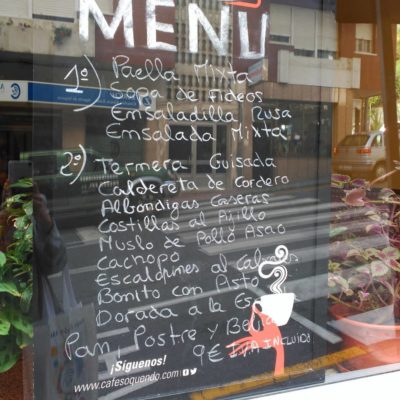 MENÚ
1º) Paella Mixta
Sopa de Fideos
Ensaladilla Rusa
Ensalada Mixta
2º) Ternera Guisada
Caldereta de Cordero
Albóndigas Caseras
Costillas al Ajillo
Muslo de Pollo Asao
Cachopo
Escalopines al
Bonito con Pisto
Dorada a la
Pan, Postre y
9€ I.V.A INCLUIDO
¡Síguenos!
www.cafesoquendo.com